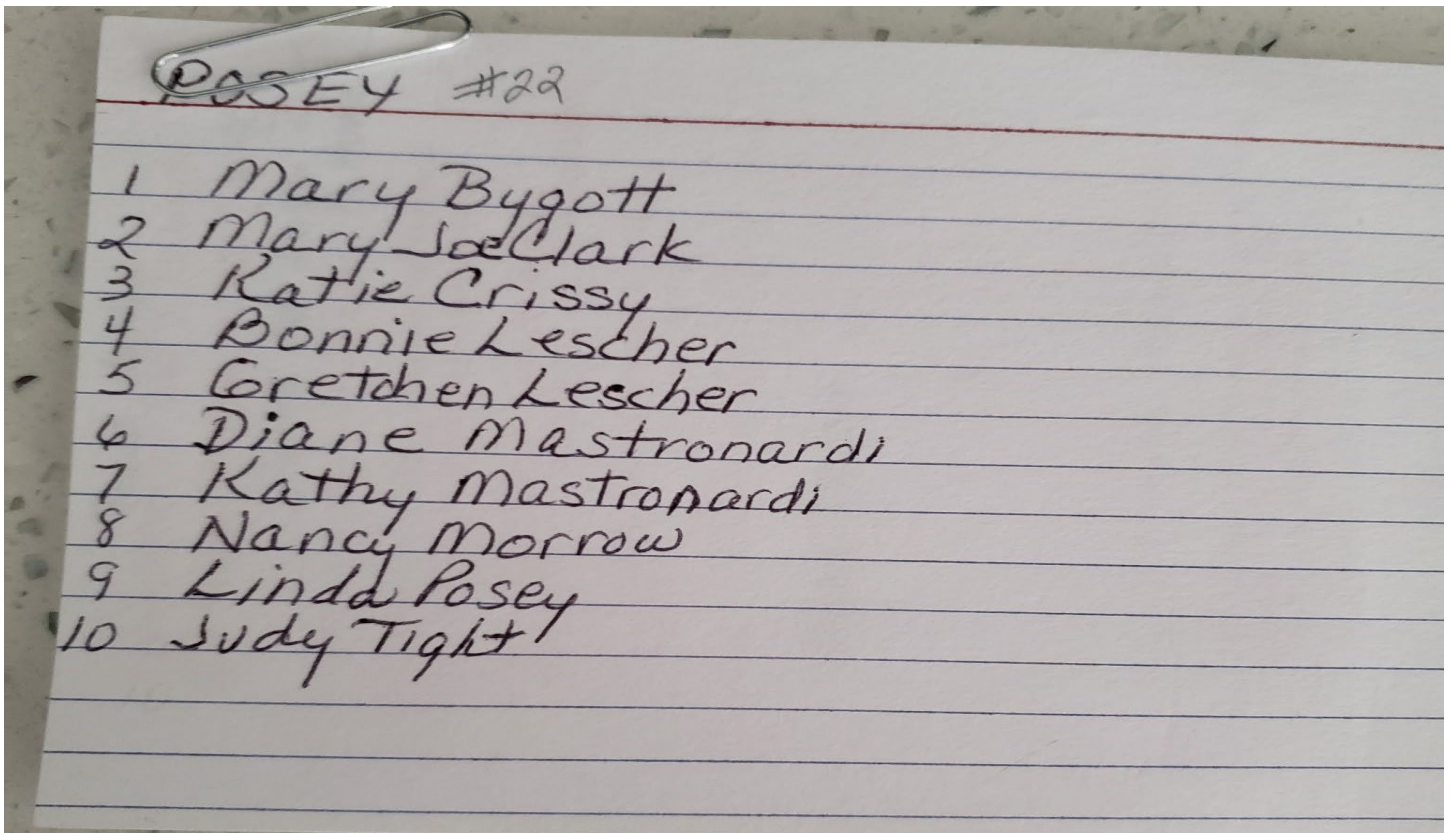 POSEY #22
1 Mary Bygott
2 Mary Joe Clark
3 Katie Crissy
4 Bonnie Lescher
5 Gretchen Lescher
6 Diane Mastronardi
7 Kathy Mastronardi
8 Nancy Morrow
9 Linda Posey
10 Judy Tight